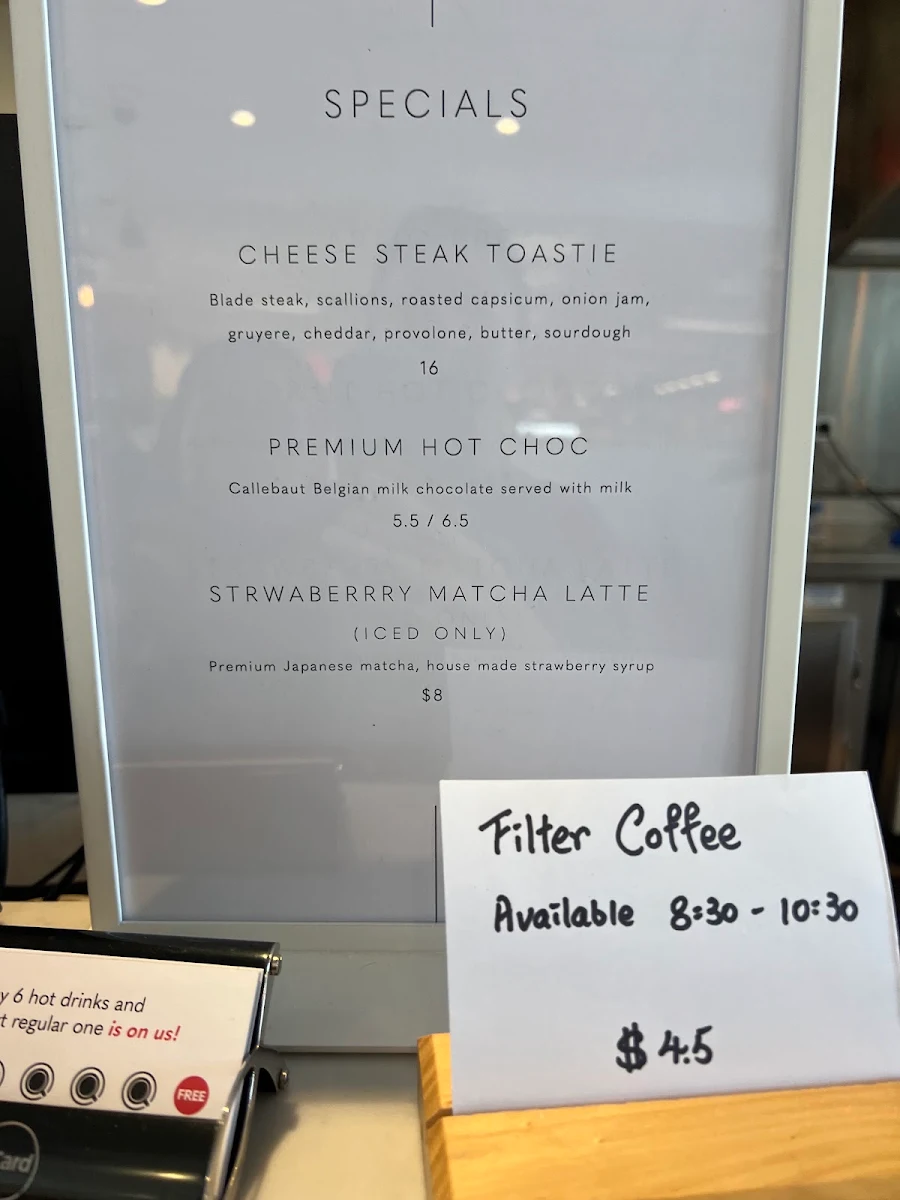 SPECIALS
CHEESE STEAK TOASTIE
Blade steak, scallions, roasted capsicum, onion jam,
gruyere, cheddar, provolone, butter, sourdough
16
PREMIUM HOT CHOC
Callebaut Belgian milk chocolate served with milk
5.5 / 6.5
STRWABERRRY MATCHA LATTE
(ICED ONLY)
Premium Japanese matcha, house made strawberry syrup
$8
Filter Coffee
Available 8:30 - 10:30
$4.5
6 hot drinks and
regular one is on us!
FREE